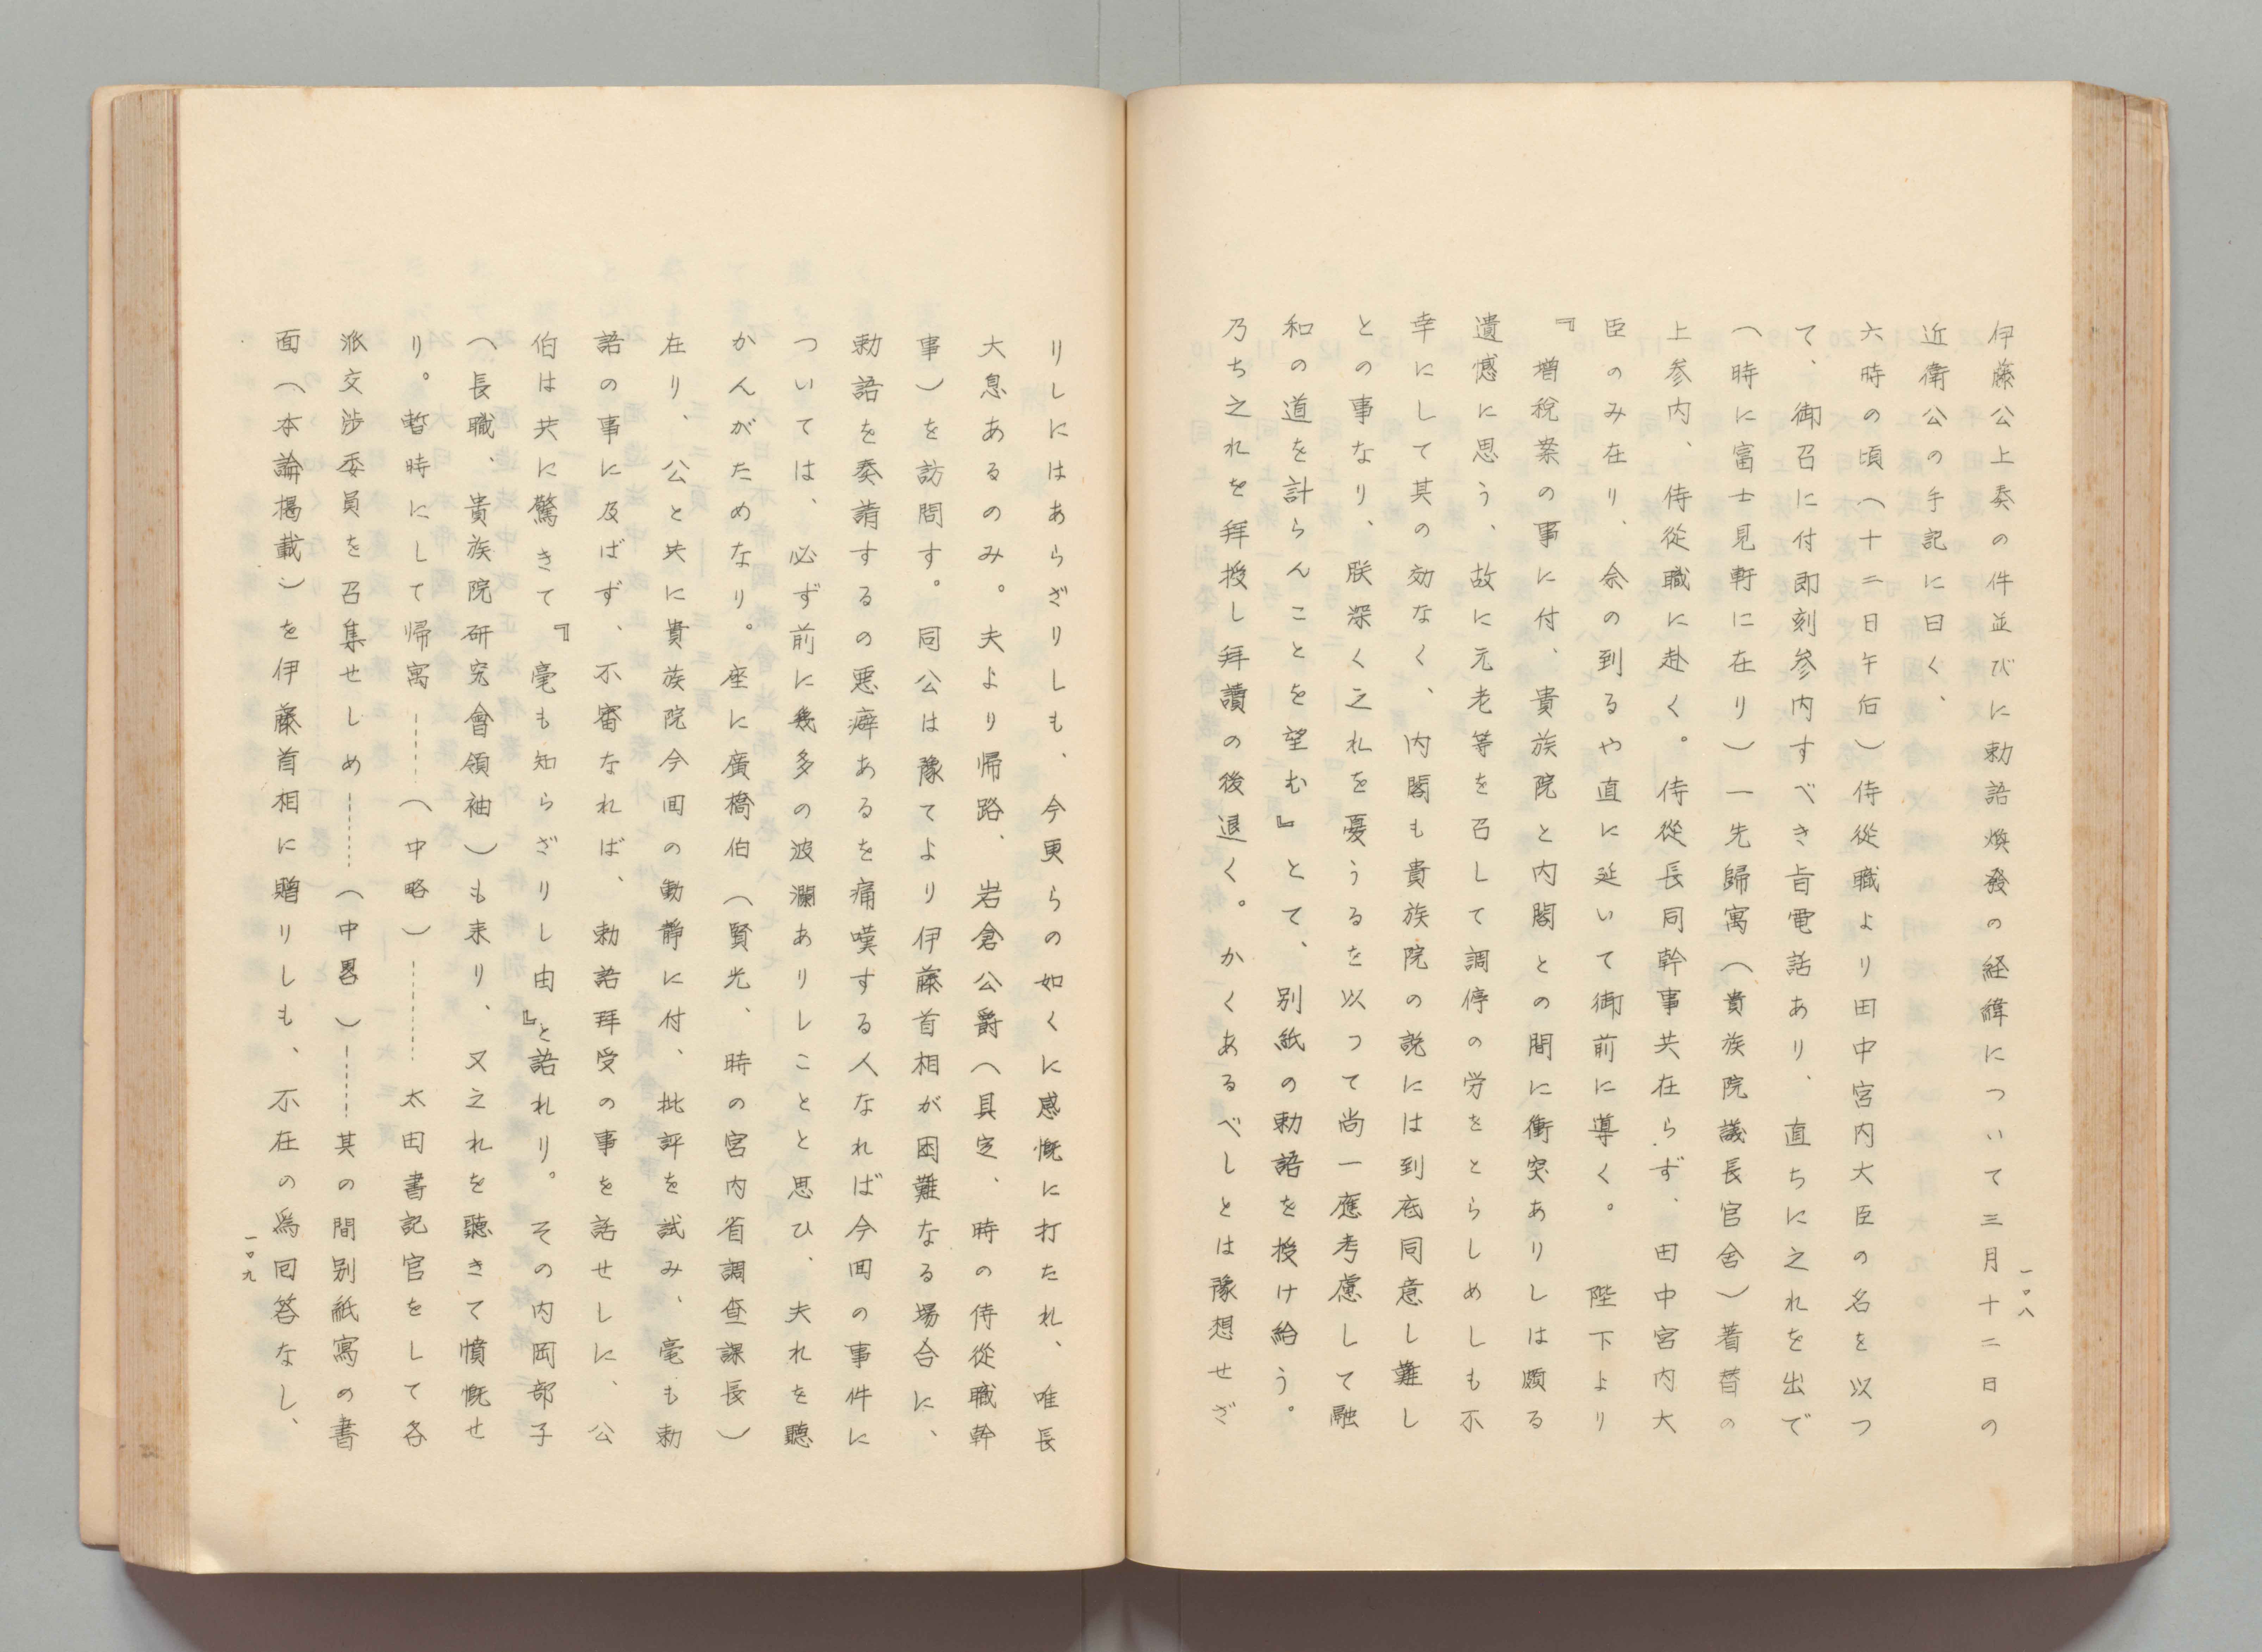 伊藤公上奏の件並びに勅語煥發の経緯について三月十二日の
近衛公の手記に曰く、
六時の頃（十二日午后）侍從職より田中宮内大臣の名を以つ
て、御召に付即刻参内すべき旨電話あり、直ちに之れを出で
（時に富士見軒に在り）一先歸寓（貴族院議長官舎）着替の
上参内、侍從職に赴く。侍從長同幹事共在らず、田中宮内大
臣のみ在り、余の到るや直に延いて御前に導く。陛下より
『増税案の事に付、貴族院と内閣との間に衝突ありしは頗る
遺憾に思う、故に元老等を召して調停の労をとらしめしも不
幸にして其の効なく、内閣も貴族院の説には到底同意し難し
との事なり、朕深く之れを憂うるを以つて尚一應考慮して融
和の道を計らんことを望む』とて、別紙の勅語を授け給う。
乃ち之れを拜授し拜讀の後退く。かくあるべしとは豫想せざ
一〇八
りしにはあらざりしも、今更らの如くに感慨に打たれ、唯長
大息あるのみ。夫より帰路、岩倉公爵（具定、時の侍從職幹
事）を訪問す。同公は豫てより伊藤首相が困難なる場合に、
勅語を奏請するの悪癖あるを痛嘆する人なれば今囬の事件に
ついては、必ず前に幾多の波瀾ありしことと思ひ、夫れを聽
かんがためなり。座に廣橋伯（賢光、時の宮内省調査課長）
在り、公と共に貴族院今囬の動静に付、批評を試み、毫も勅
語の事に及ばず、不審なれば、勅語拜受の事を話せしに、公
伯は共に驚きて『毫も知らざりし由』と語れり。その内岡部子
（長職、貴族院研究會領袖）も来り、又之れを聽きて憤慨せ
り。暫時にして帰寓……（中略）……太田書記官をして各
派交渉委員を召集せしめ……（中畧）……其の間別紙寫の書
面（本論掲載）を伊藤首相に贈りしも、不在の爲囘答なし、
一〇九